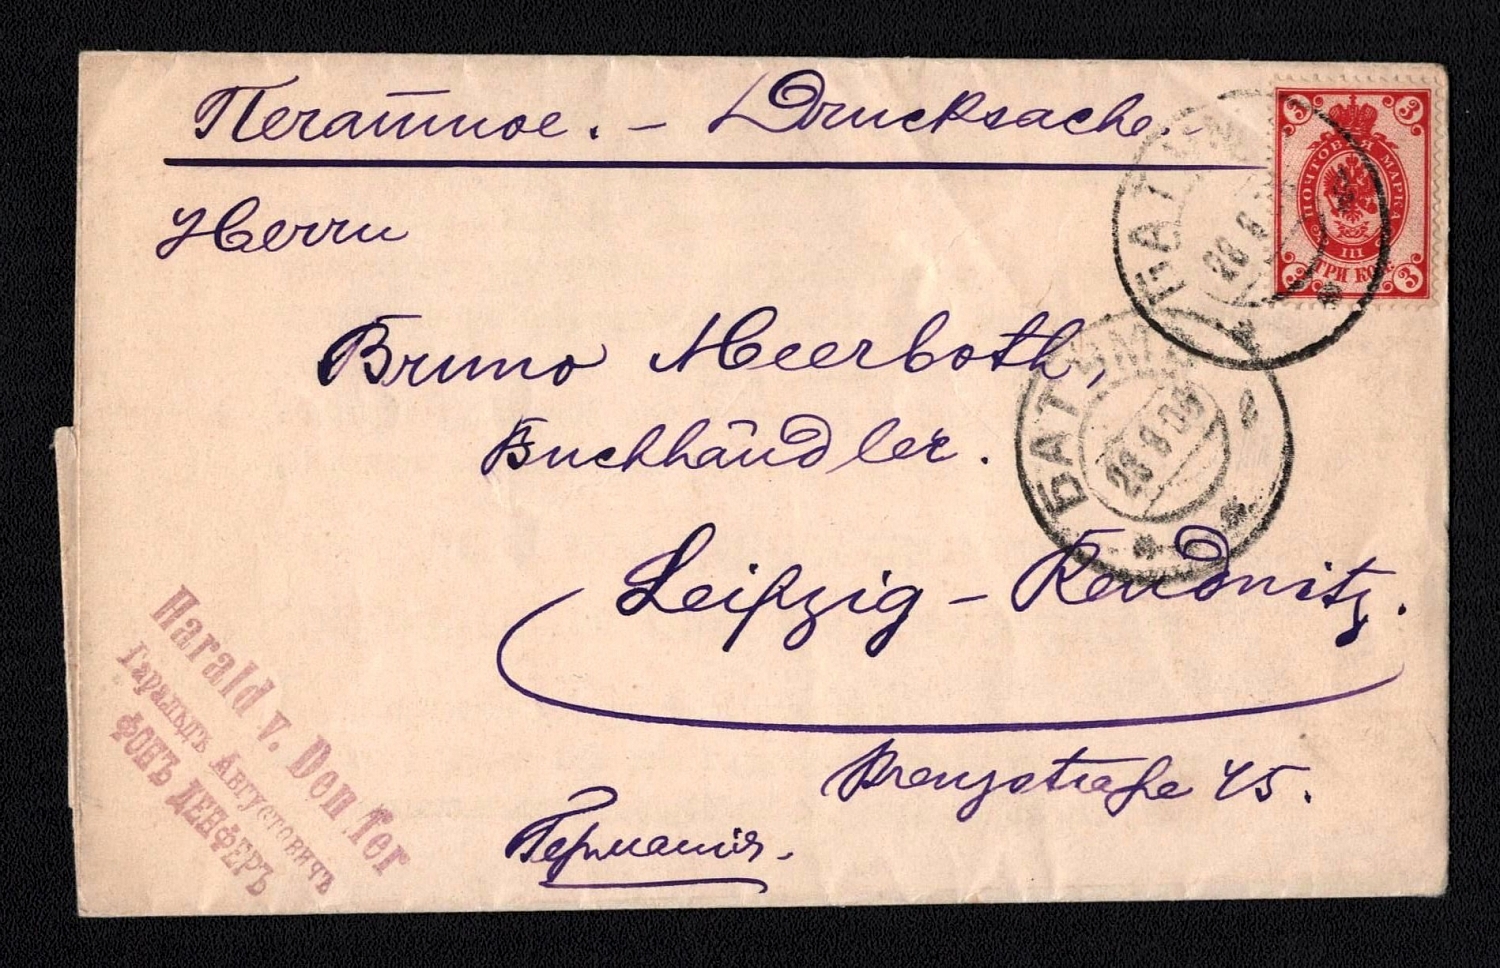 Печатное. – Drucksache. –
Herrn
Bruno Meerboth,
Buchhändler.
Leipzig – Reudnitz.
Kreuzstraße 45.
Германія.
Harald v. Den fer
Гаральдъ Августовичъ
ФОНЪ ДЕНФЕРЪ
3 3
ПОЧТОВАЯ МАРКА
III
ТРИ КОП.
3 3
БАТУМЪ
28
БАТУМЪ
28 9 09